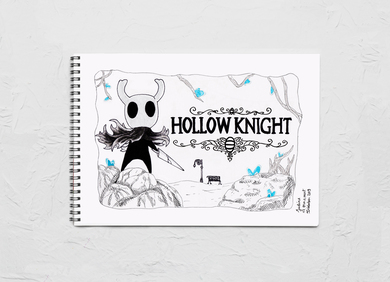 HOLLOW KNIGHT